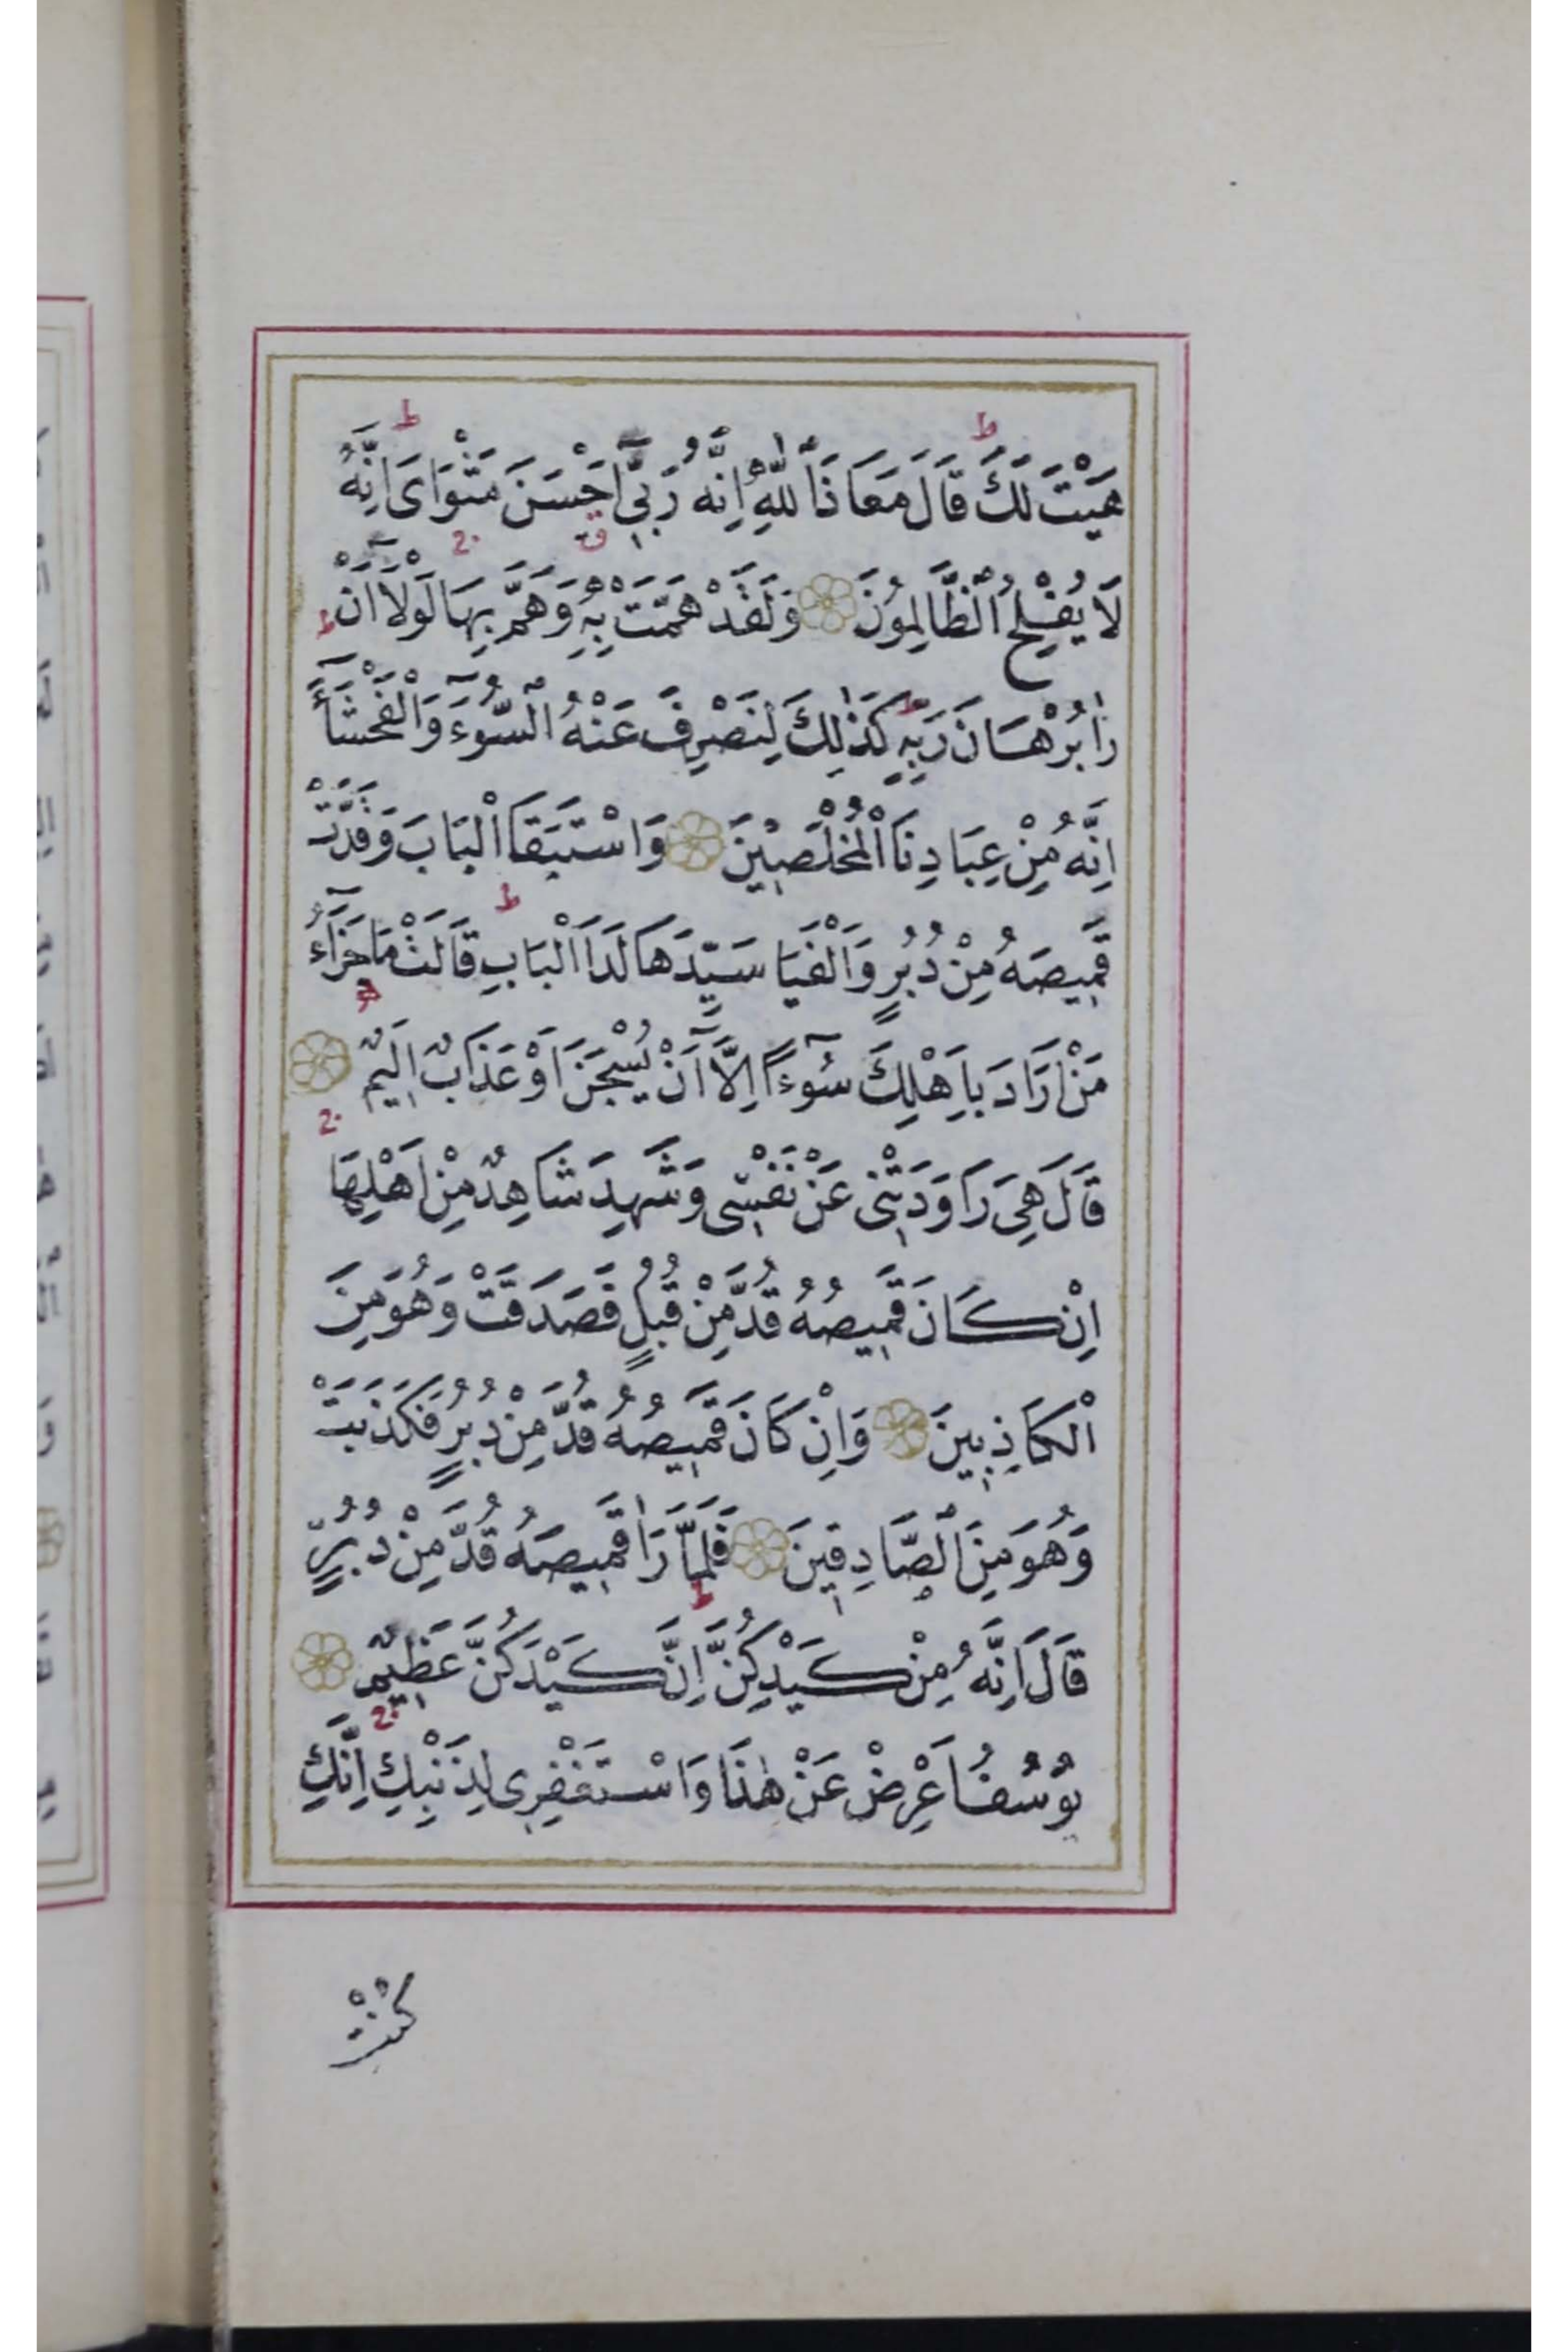 هَيْتَ لَكَ قَالَ مَعَاذَ اللّٰهِ اِنَّهُ رَبّ۪ٓى اَحْسَنَ مَثْوَاىَ اِنَّهُ
لَا يُفْلِحُ الظَّالِمُونَ وَلَقَدْ هَمَّتْ بِه۪ وَهَمَّ بِهَا لَوْلَٓا اَنْ
رَاٰ بُرْهَانَ رَبِّه۪ كَذٰلِكَ لِنَصْرِفَ عَنْهُ السُّٓوءَ وَالْفَحْشَٓاءَ
اِنَّهُ مِنْ عِبَادِنَا الْمُخْلَص۪ينَ وَاسْتَبَقَا الْبَابَ وَقَدَّتْ
قَم۪يصَهُ مِنْ دُبُرٍ وَاَلْفَيَا سَيِّدَهَا لَدَا الْبَابِ قَالَتْ مَا جَزَٓاءُ
مَنْ اَرَادَ بِاَهْلِكَ سُٓوءًا اِلَّٓا اَنْ يُسْجَنَ اَوْ عَذَابٌ اَل۪يمٌ
قَالَ هِىَ رَاوَدَتْن۪ى عَنْ نَفْس۪ى وَشَهِدَ شَاهِدٌ مِنْ اَهْلِهَا
اِنْ كَانَ قَم۪يصُهُ قُدَّ مِنْ قُبُلٍ فَصَدَقَتْ وَهُوَ مِنَ
الْكَاذِب۪ينَ وَاِنْ كَانَ قَم۪يصُهُ قُدَّ مِنْ دُبُرٍ فَكَذَبَتْ
وَهُوَ مِنَ الصَّادِق۪ينَ فَلَمَّا رَاٰ قَم۪يصَهُ قُدَّ مِنْ دُبُرٍ
قَالَ اِنَّهُ مِنْ كَيْدِكُنَّ اِنَّ كَيْدَكُنَّ عَظ۪يمٌ
يُوسُفُ اَعْرِضْ عَنْ هٰذَا وَاسْتَغْفِر۪ى لِذَنْبِكِ اِنَّكِ
كُنْتِ